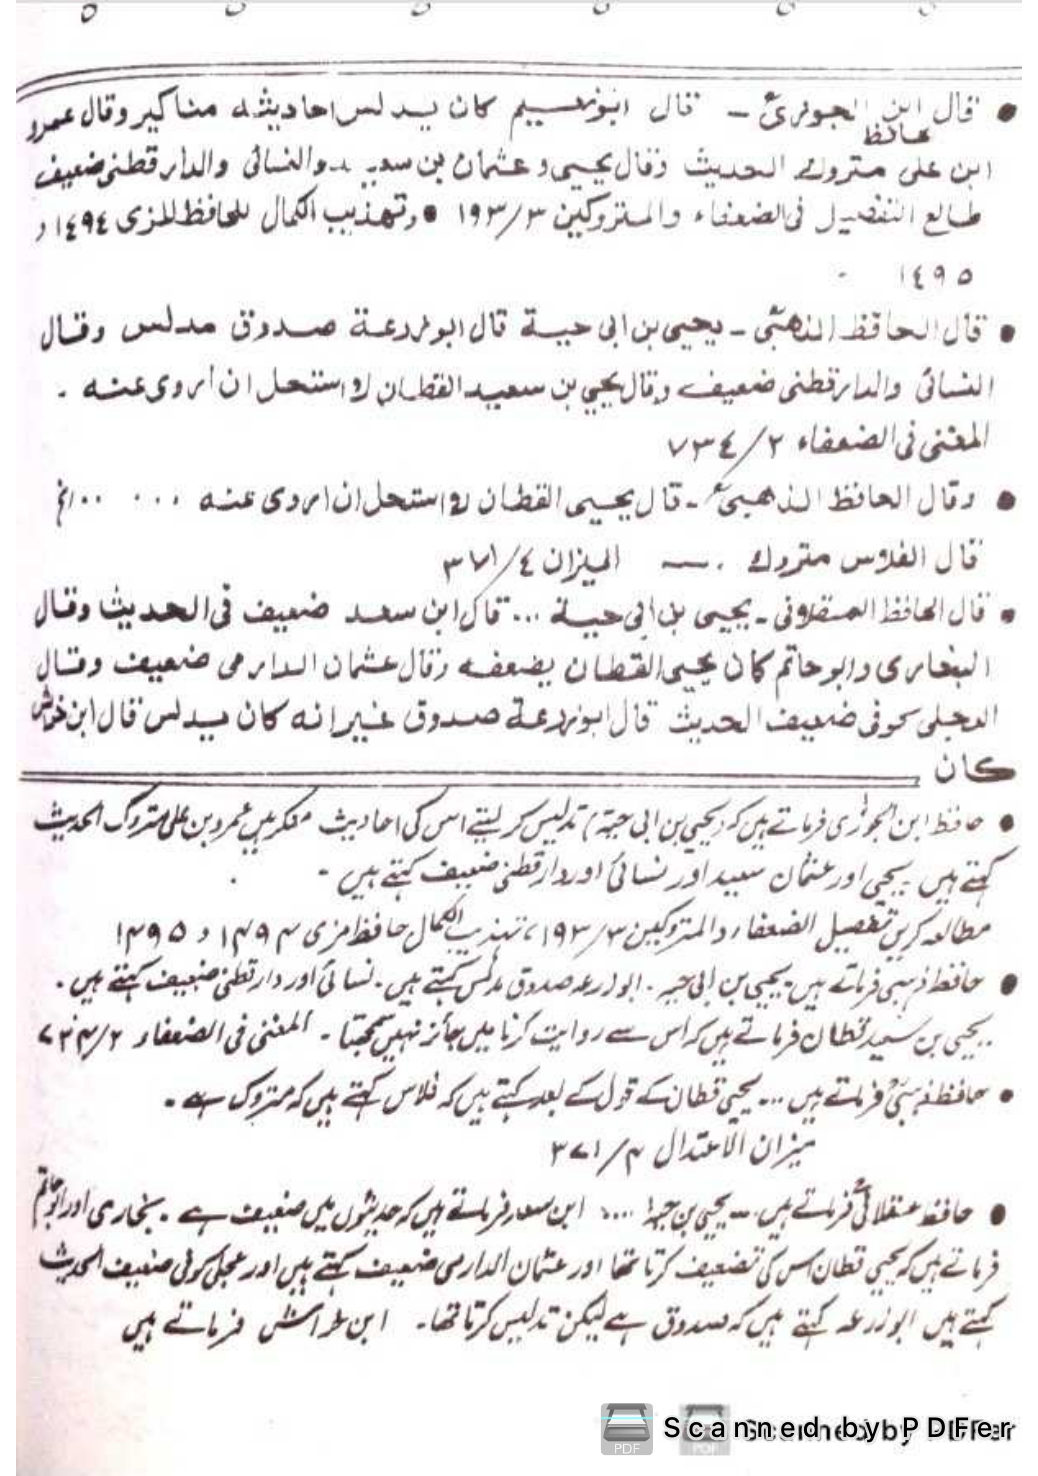 • قال حافظ ابن الجوزیؒ ـ قال ابونعیم کان یدلس احادیثه مناکیر وقال عمرو
ابن علی متروک الحدیث وقال یحیی و عثمان بن سعید والنسائی والدارقطنی ضعیف
طالع التفصیل فی الضعفاء والمتروکین ۱۹۳/۳ • وتهذیب الکمال للحافظ المزی ١٤٩٤ و
١٤٩٥
• قال الحافظ الذهبیؒ ـ یحیی بن ابی حیة قال ابوزرعة صدوق مدلس وقال
النسائی والدارقطنی ضعیف وقال یحیی بن سعید القطان لا استحل ان اروی عنه ۔
المغنی فی الضعفاء ۷۳٤/۲
• وقال الحافظ الذهبیؒ ـ قال یحیی القطان لا استحل ان اروی عنه ... ..الخ
قال الفلاس متروک ۔ــ المیزان ۳۷۱/٤
• قال الحافظ العسقلانی ـ یحیی بن ابی حیة ... قال ابن سعد ضعیف فی الحدیث وقال
البخاری وابوحاتم کان یحیی القطان یضعفه وقال عثمان الدارمی ضعیف وقال
العجلی کوفی ضعیف الحدیث قال ابوزرعة صدوق غیرانه کان یدلس قال ابن خراش
کان
• حافظ ابن الجوزی فرماتے ہیں کہ (یحیی بن ابی حیة) تدلیس کرلیتے اس کی احادیث منکر ہیں عمرو بن علی متروک الحدیث
کہتے ہیں ۔یحیی اور عثمان سعید اور نسائی اور دارقطنی ضعیف کہتے ہیں ۔
مطالعہ کریں تفصیل الضعفاء والمتروکین ۱۹۳/۳، تہذیب الکمال حافظ مزی ۱۴۹۴ و ۱۴۹۵
• حافظ ذہبی فرماتے ہیں۔ یحیی بن ابی حیہ ۔ ابوزرعہ صدوق مدلس کہتے ہیں۔ نسائی اور دارقطنی ضعیف کہتے ہیں ۔
یحیی بن سعید قطان فرماتے ہیں کہ اس سے روایت کرنا میں جائز نہیں سمجھتا ۔ المغنی فی الضعفاء ۷۳۴/۲
• حافظ ذہبیؒ فرماتے ہیں ... یحیی قطان کے قول کے بعد کہتے ہیں کہ فلاس کہتے ہیں کہ متروک ہے ۔
میزان الاعتدال ۳۷۱/۴
• حافظ عسقلانیؒ فرماتے ہیں ۔۔ یحیی بن حیہ .... ابن سعد فرماتے ہیں کہ حدیثوں میں ضعیف ہے ۔ بخاری اور ابوحاتم
فرماتے ہیں کہ یحیی قطان اس کی تضعیف کرتا تھا اور عثمان الدارمی ضعیف کہتے ہیں اور عجلی کوفی ضعیف الحدیث
کہتے ہیں ابوزرعہ کہتے ہیں کہ صدوق ہے لیکن تدلیس کرتا تھا۔ ابن خراش فرماتے ہیں
Scanned by PDFer
Scanned by PDFer